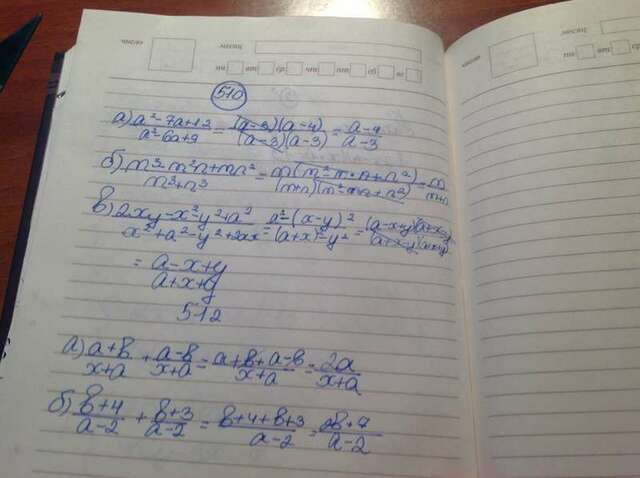 число месяц
пн вт ср чт пт сб вс
месяц
пн вт ср
510
а) a²-7a+12/a²-6a+9 = (a-3)(a-4)/(a-3)(a-3) = a-4/a-3
б) m³-m²n+mn²/m³+n³ = m(m²-m·n+n²)/(m+n)(m²-mn+n²) = m/m+n
в) 2xy-x²-y²+a²/x²+a²-y²+2ax = a²-(x-y)²/(a+x)²-y² = (a-x+y)(a+x-y)/(a+x-y)(a+x+y)
= a-x+y/a+x+y
512
а) a+b/x+a + a-b/x+a = a+b+a-b/x+a = 2a/x+a
б) b+4/a-2 + b+3/a-2 = b+4+b+3/a-2 = 2b+7/a-2